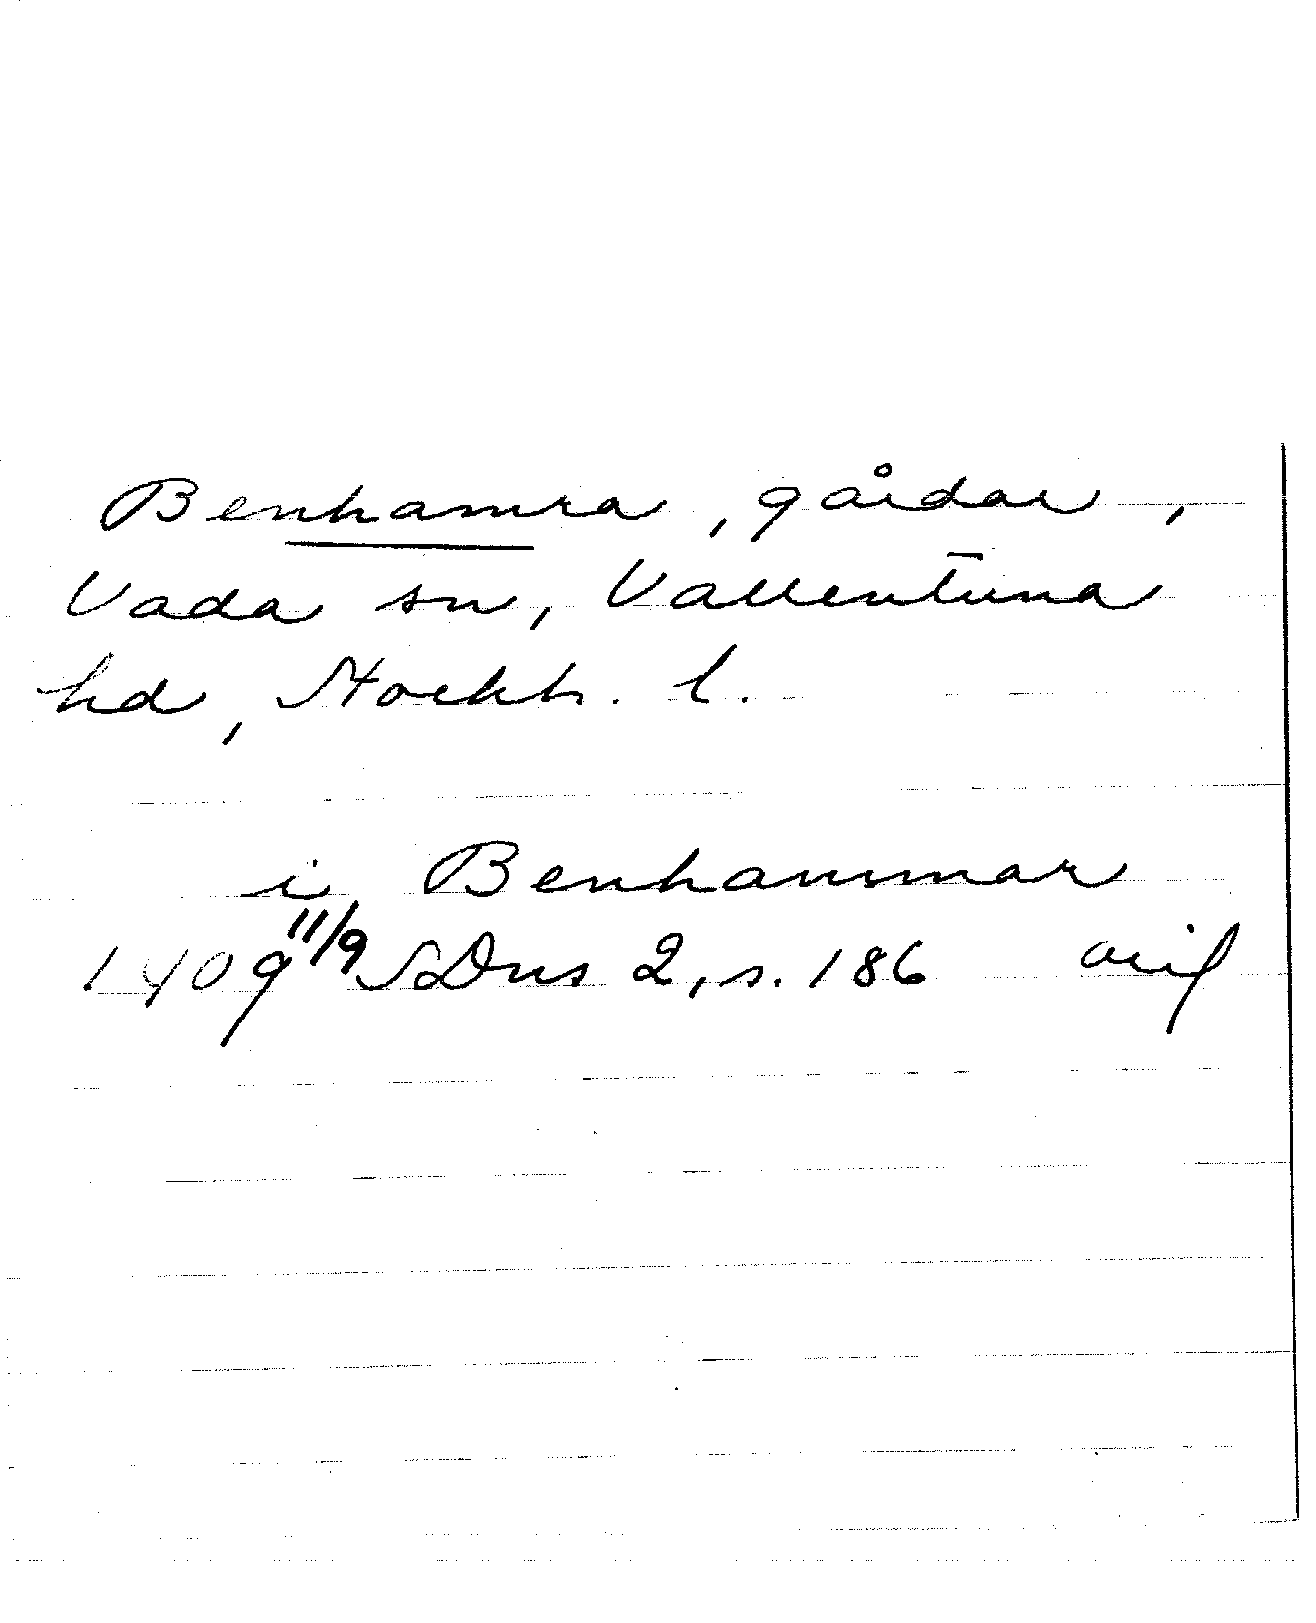 Benhamra, gårdar,
Vada sn, Vallentuna
hd, Stockh. l.
i Benhammar
1409 11/9 SDns 2, s. 186 orig